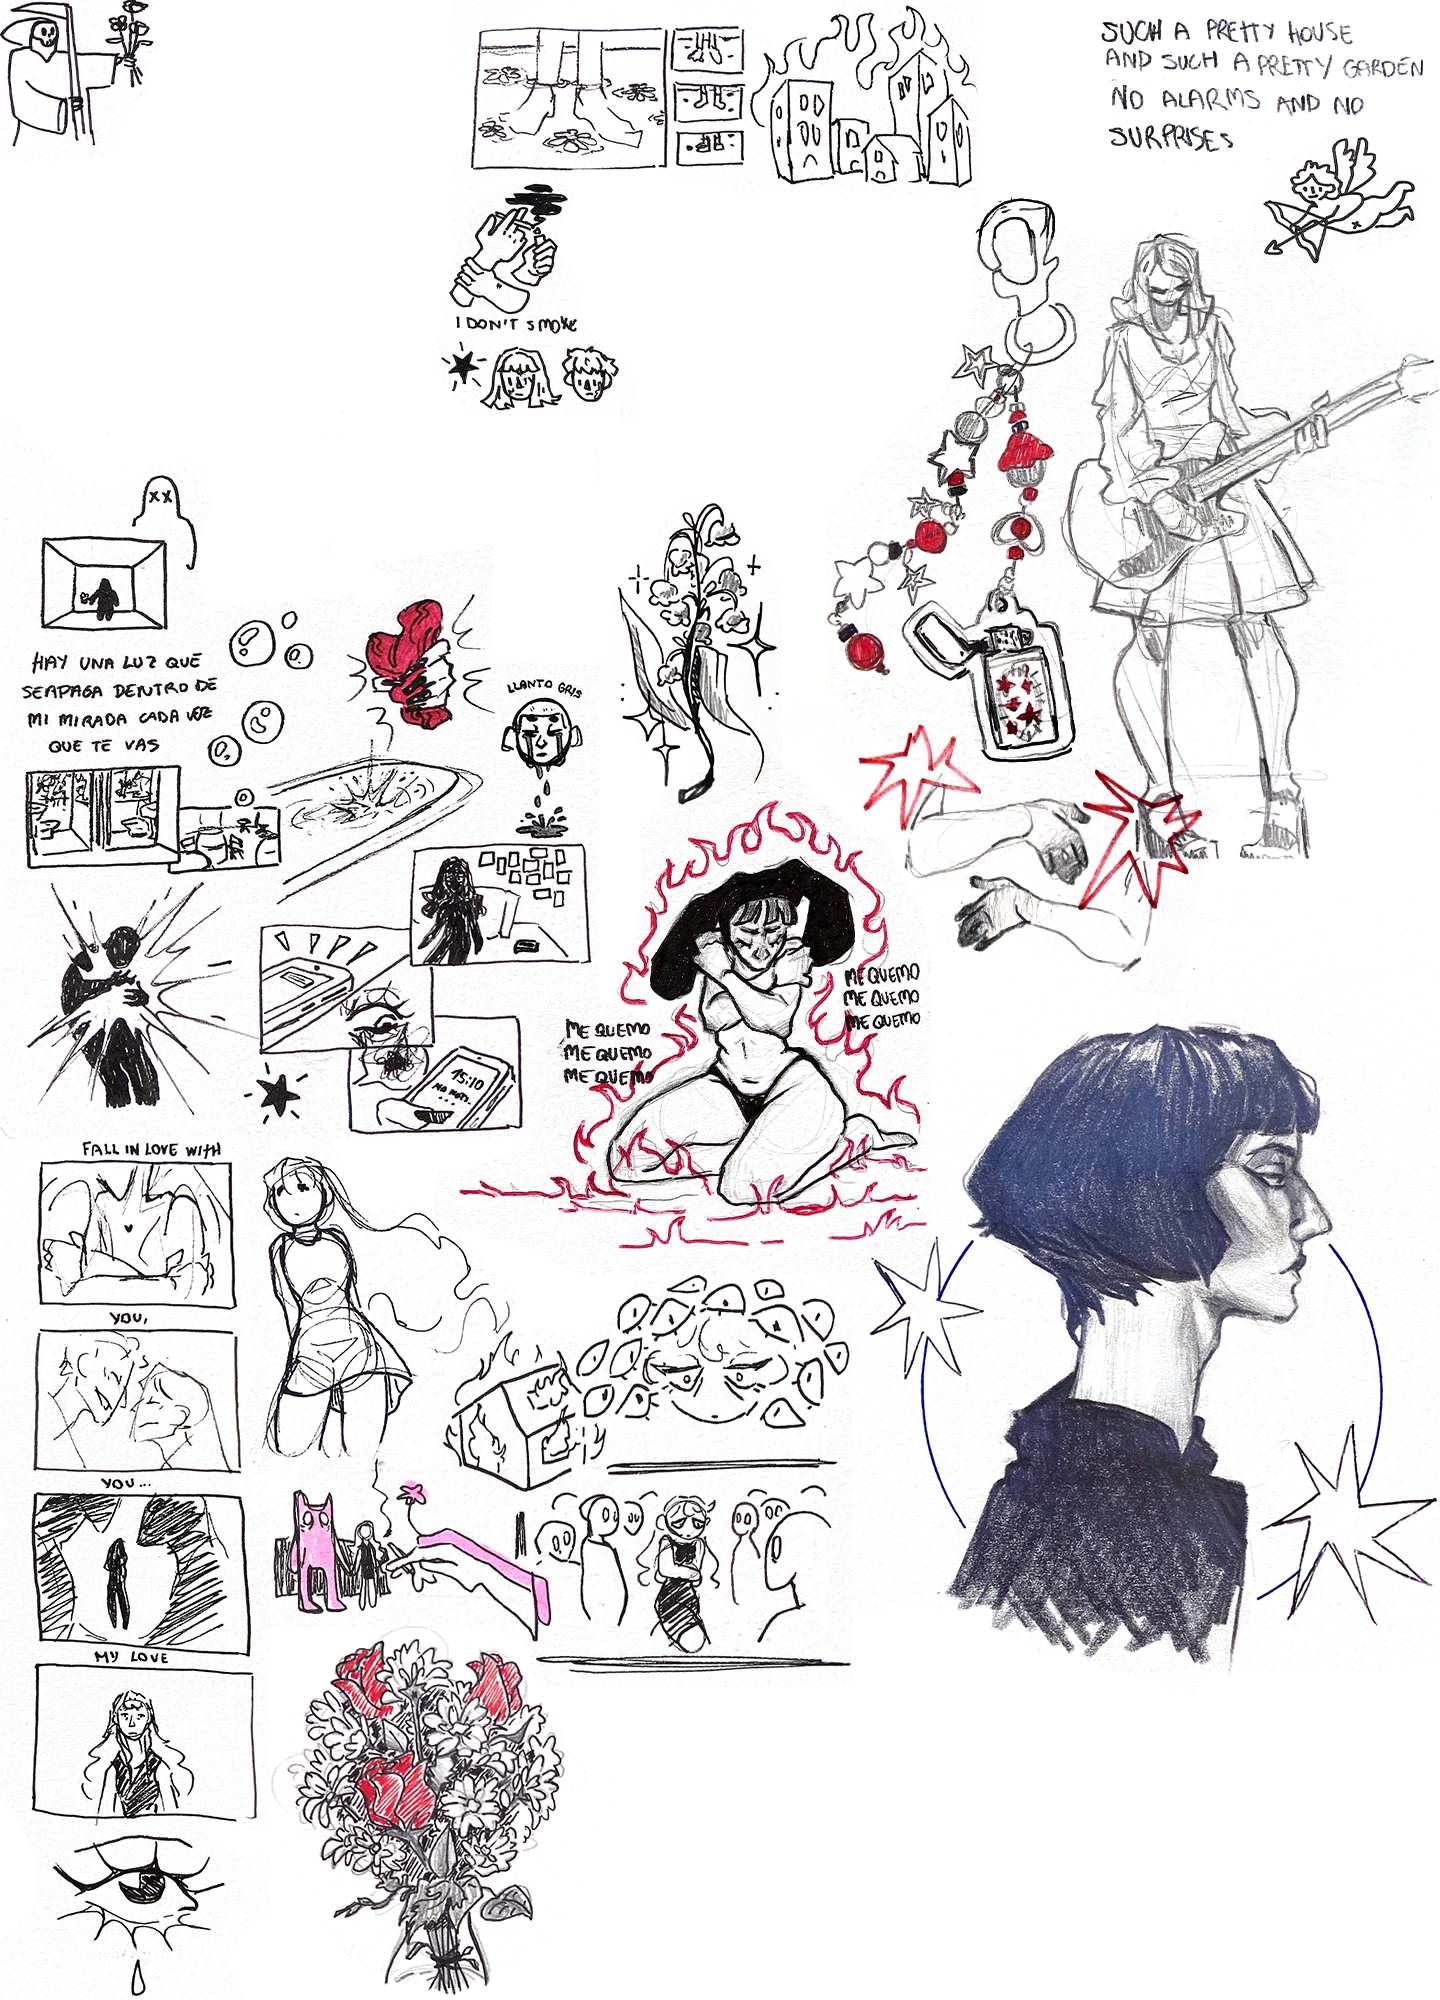 SUCH A PRETTY HOUSE
AND SUCH A PRETTY GARDEN
NO ALARMS AND NO
SURPRISES
I DON'T SMOKE
HAY UNA LUZ QUE
SE APAGA DENTRO DE
MI MIRADA CADA VEZ
QUE TE VAS
LLANTO GRIS
ME QUEMO
ME QUEMO
ME QUEMO
ME QUEMO
ME QUEMO
ME QUEMO
15:10
FALL IN LOVE WITH
YOU,
YOU...
MY LOVE